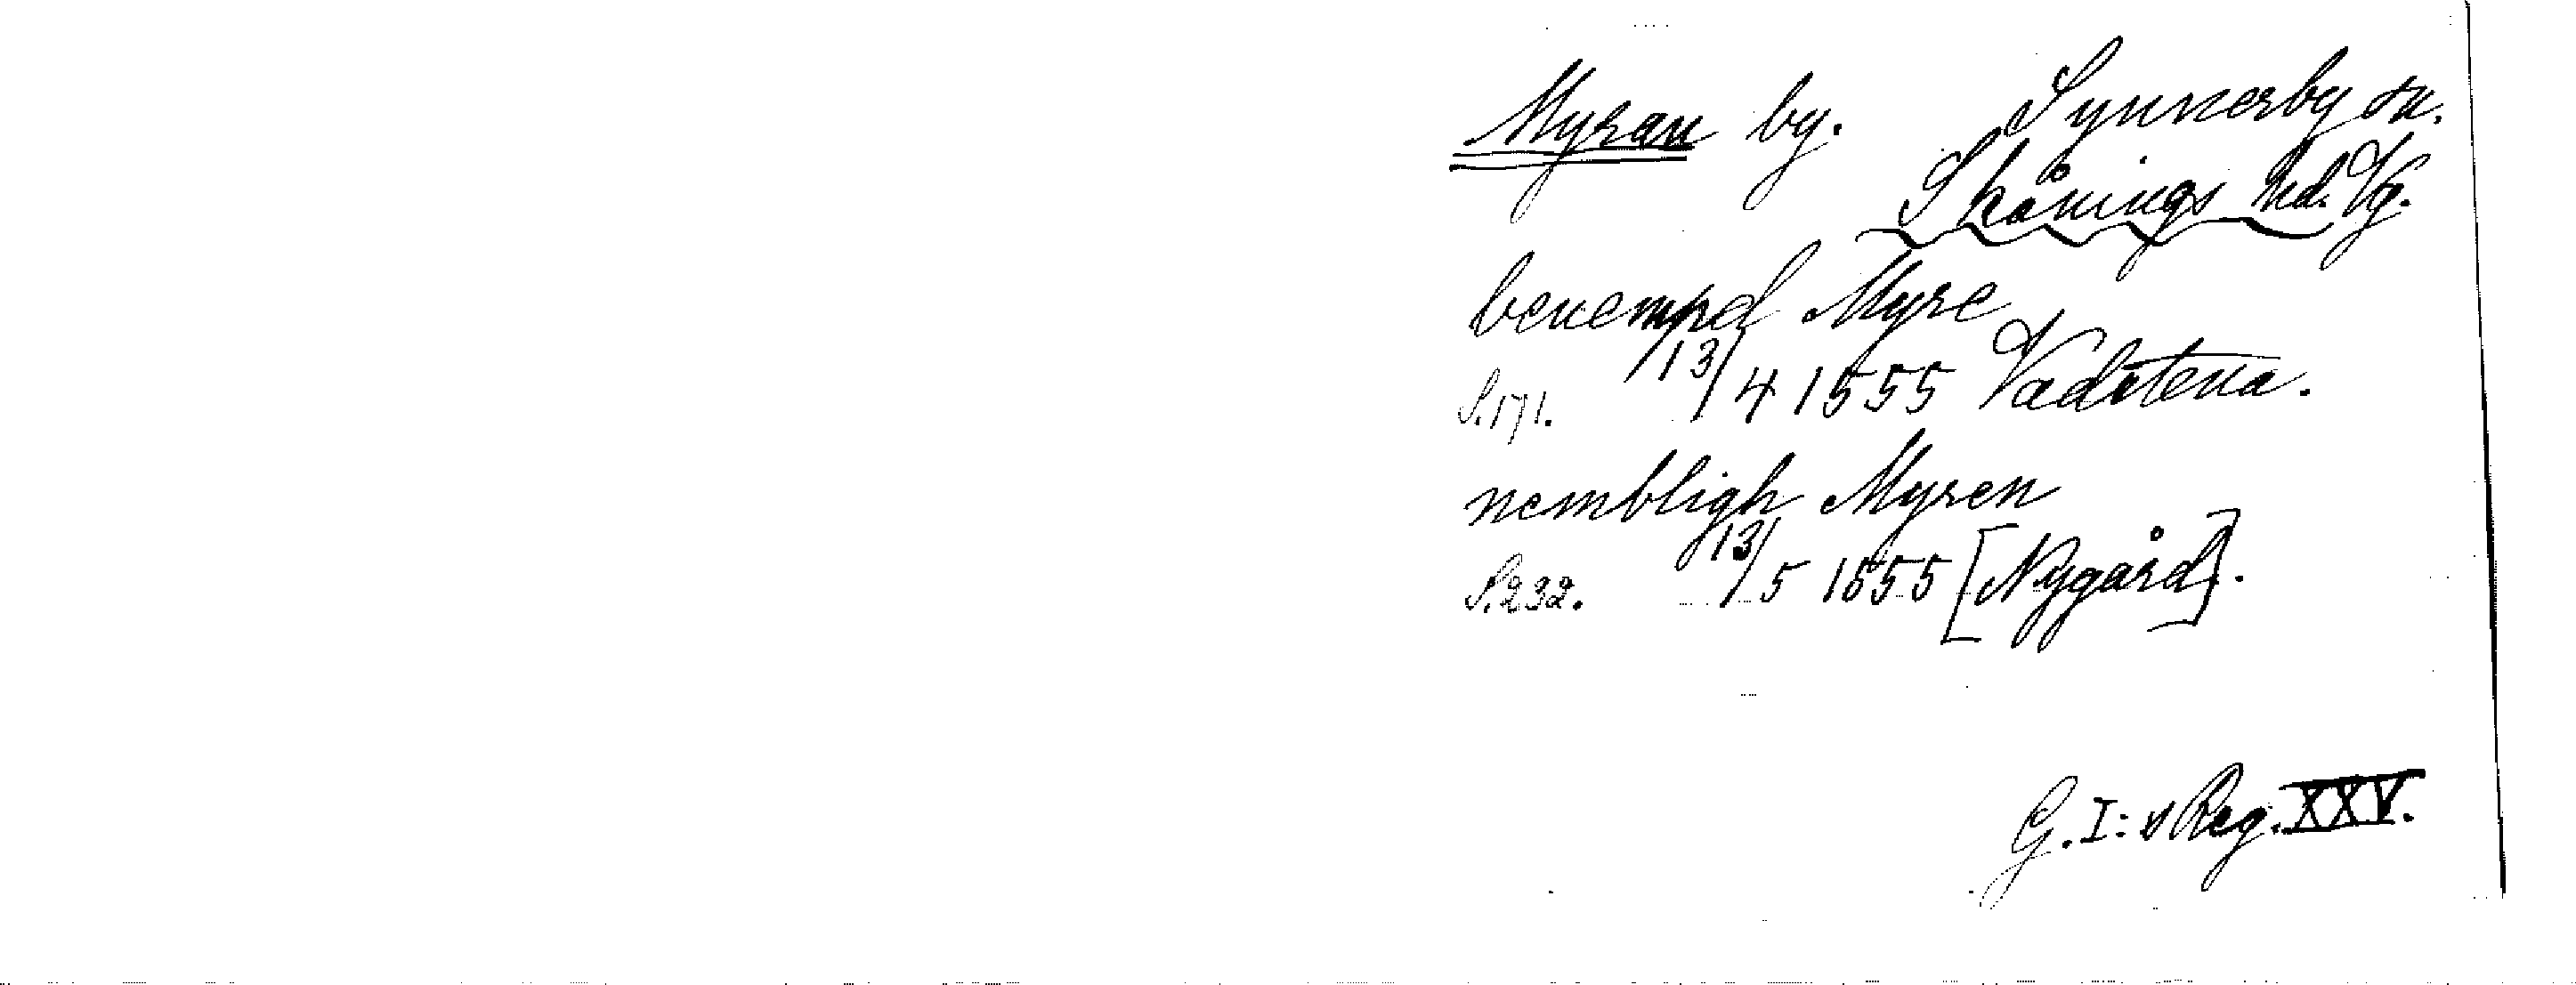 Myran by. Synnerby sn.
Skånings hd. Vg.
benempd Myre
S. 171. 13/4 1555 Vadstena.
nembligh Myren
S. 232. 13/5 1555 [Nygård].
G. I:s Reg. XXV.